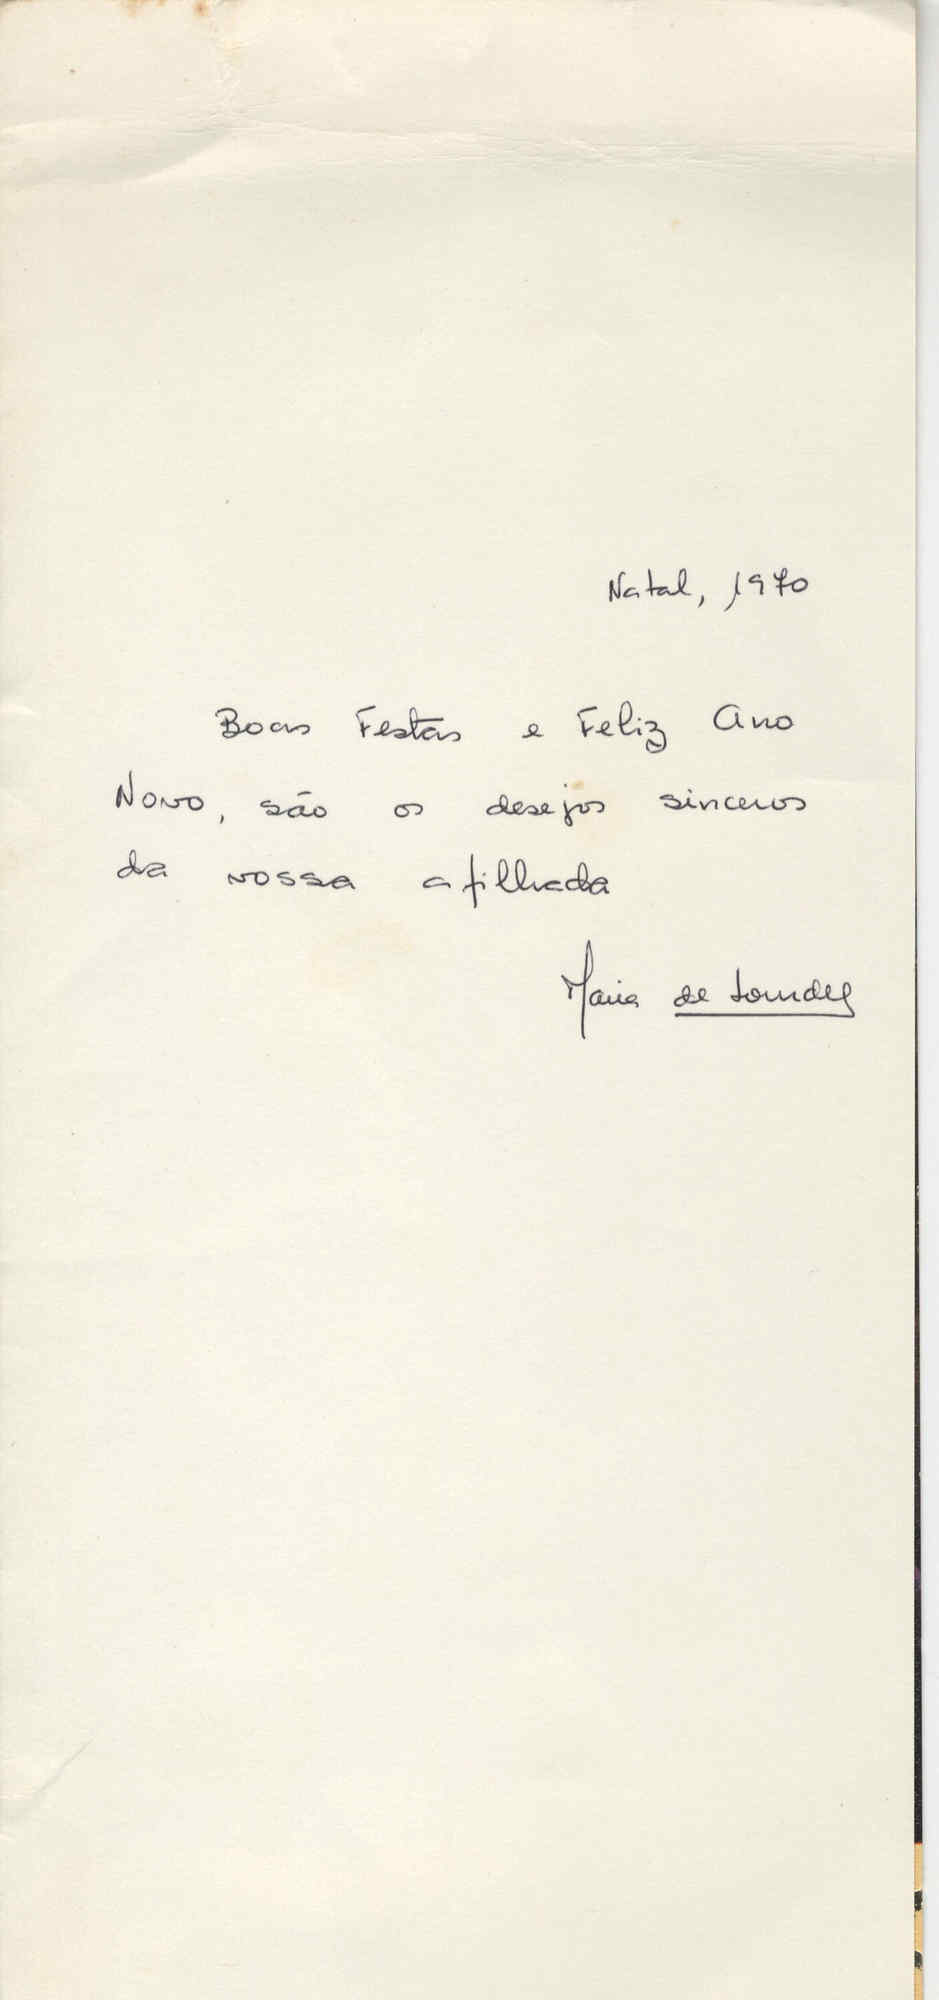 Natal, 1970
Boas Festas e Feliz Ano
Novo, são os desejos sinceros
da vossa afilhada
Maria de Lourdes